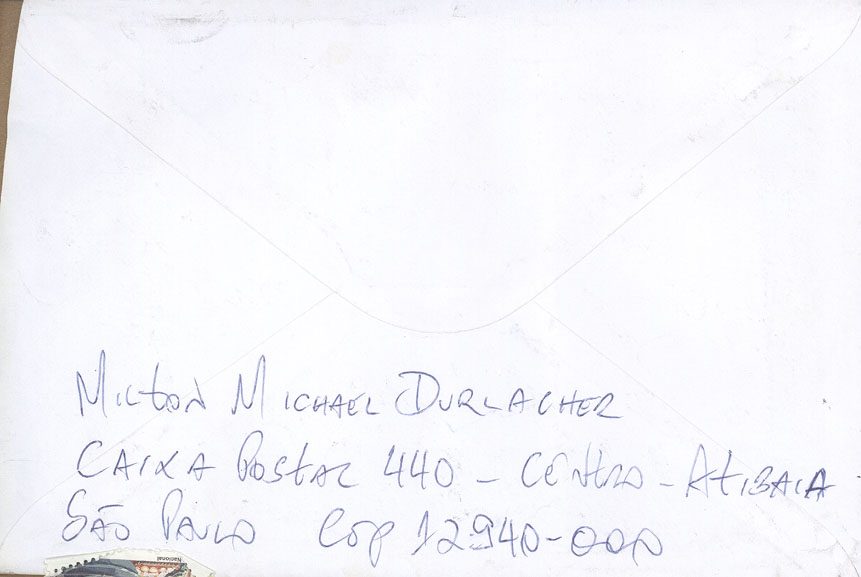 Milton Michael Durlacher
Caixa Postal 440 - Centro - Atibaia
São Paulo Cep 12940-000
National